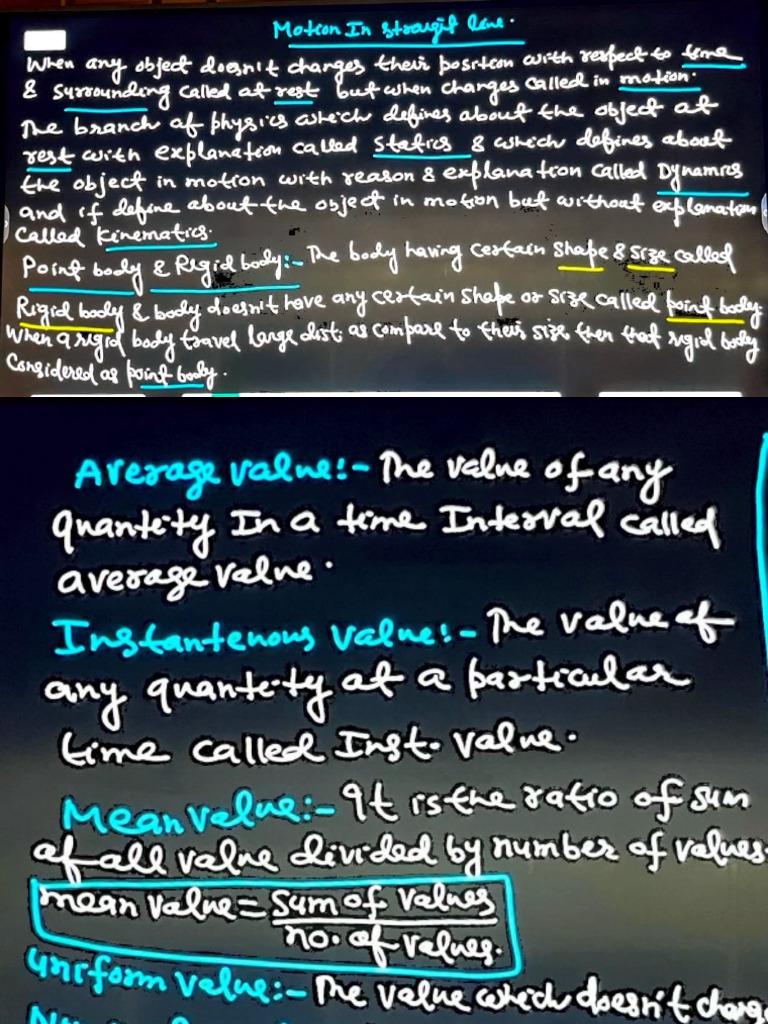 Motion In straight line.
When any object doesn't changes their position with respect to time
& surrounding called at rest but when changes called in motion.
The branch of physics which defines about the object at
rest with explanation called Statics & which defines about
the object in motion with reason & explanation called Dynamics
and if define about the object in motion but without explanation
called Kinematics.
Point body & Rigid body:- The body having certain shape & size called
Rigid body & body doesn't have any certain shape or size called point body.
When a rigid body travel large dist. as compare to their size then that rigid body
Considered as point body.
Average value:- The value of any
quantity In a time Interval called
average value.
Instantenous value:- The value of
any quantity at a particular
time called Inst. value.
Mean value:- It is the ratio of sum
of all value divided by number of values.
mean value = sum of values
no. of values.
uniform value:- The value which doesn't